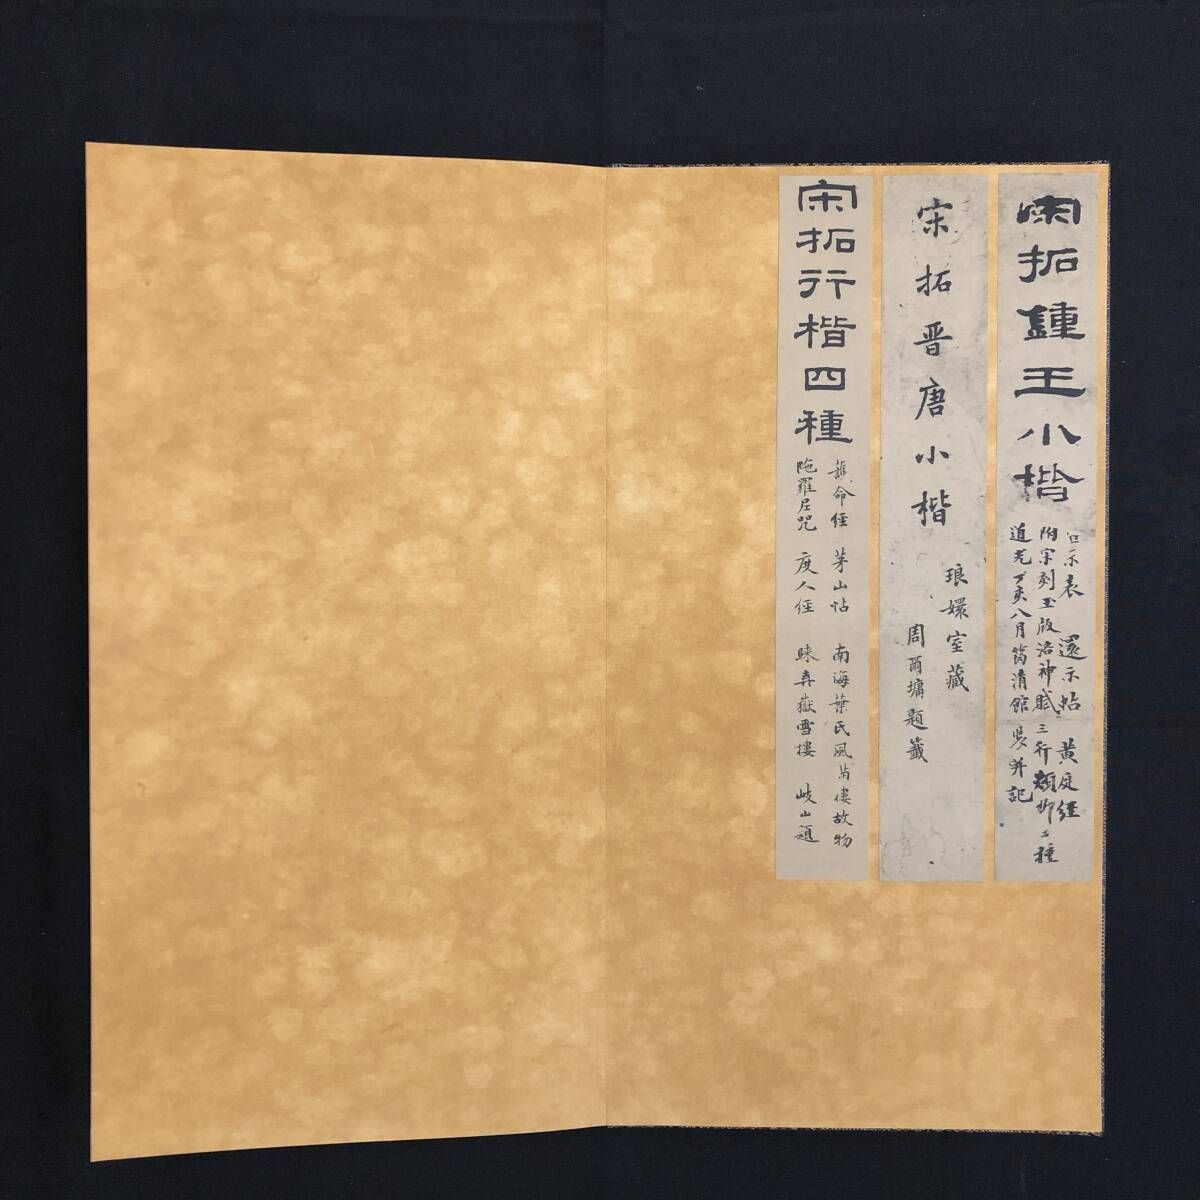 宋拓鍾王小楷
宣示表 還示帖 黃庭經
附宋刻玉版洛神賦 三行 類鈔二種
道光丁亥八月筠清館 并記
宋拓晉唐小楷
琅嬛室藏
周爾墉題籤
宋拓行楷四種
護命經 茅山帖 南海葉氏風滿樓故物
陁羅尼咒 度人經 歸嶽雪樓 岐山題